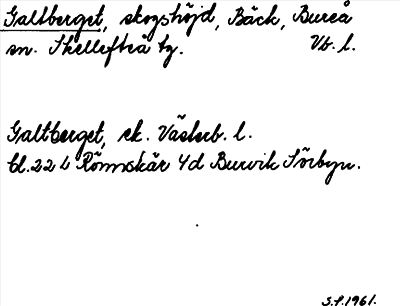 Galtberget, skogshöjd, Bäck, Bureå
sn. Skellefteå tg. Vb. l.
Galtberget, ek. Västerb. l.
bl. 22 L Rönnskär 4d Burvik Sörbyn.
S.P. 1961.